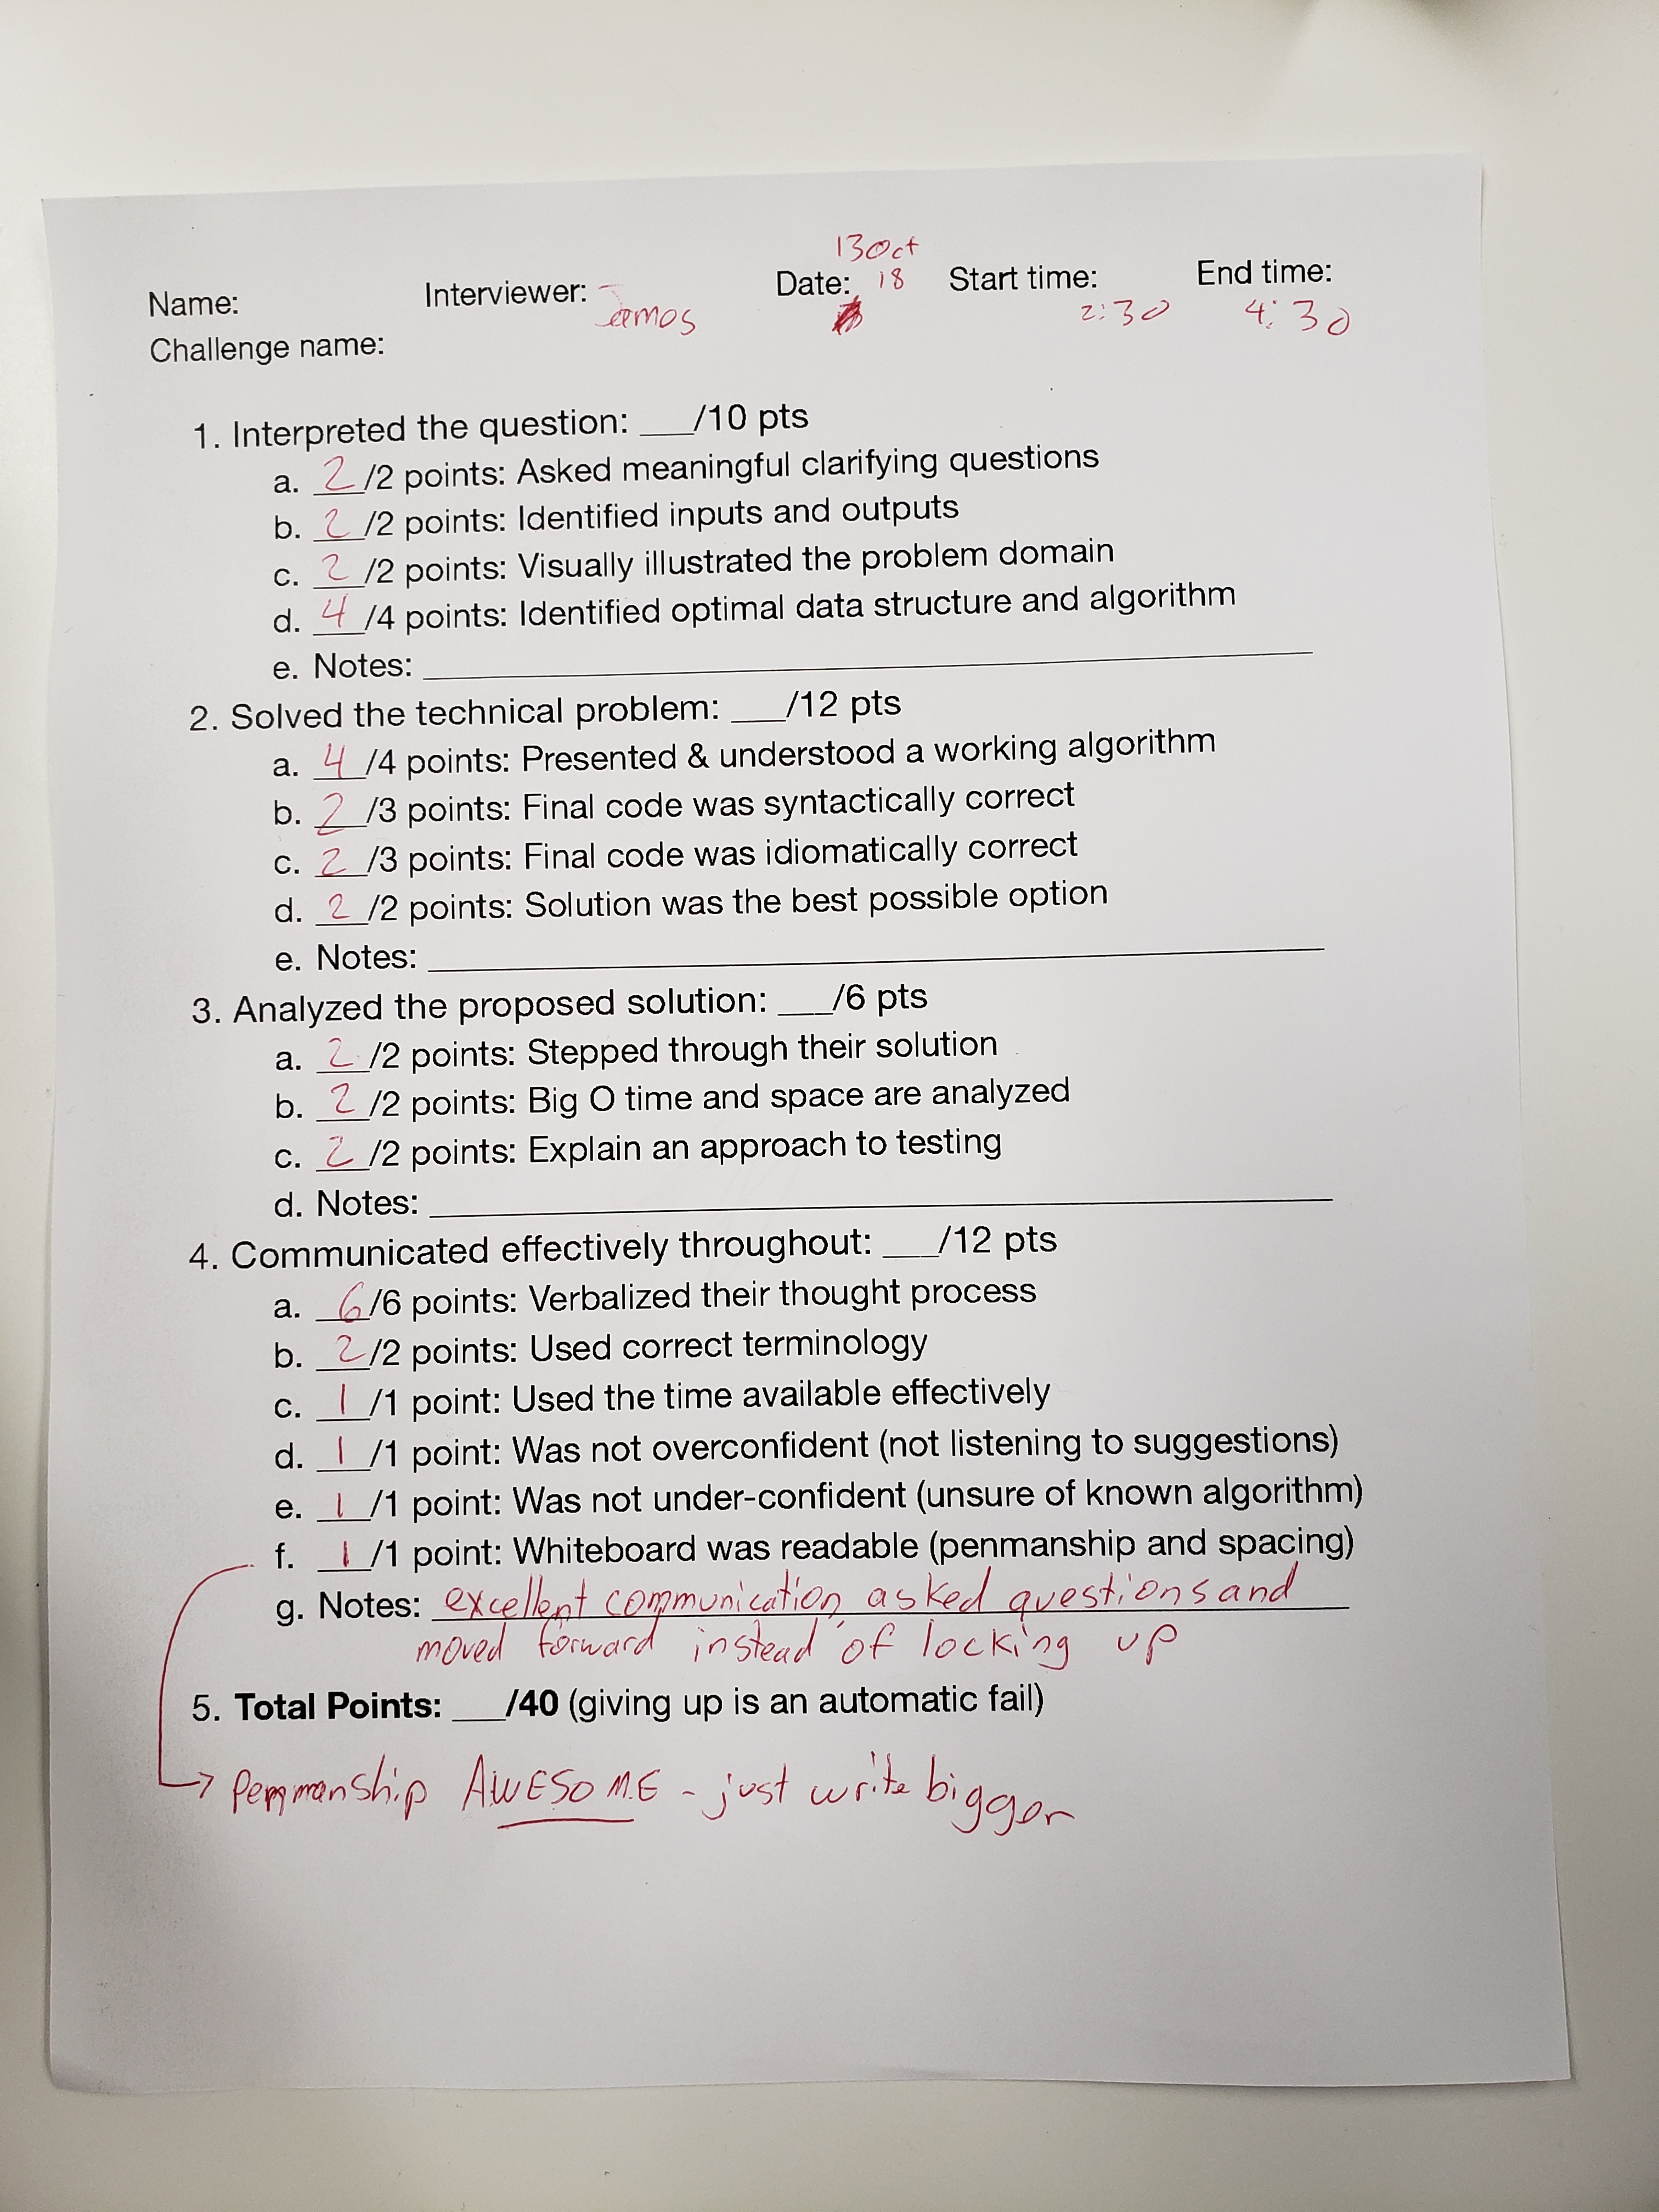 13 Oct
Name: Interviewer: Date: 18 Start time: End time:
James 2:30 4:30
Challenge name:
1. Interpreted the question: ___/10 pts
a. 2/2 points: Asked meaningful clarifying questions
b. 2/2 points: Identified inputs and outputs
c. 2/2 points: Visually illustrated the problem domain
d. 4/4 points: Identified optimal data structure and algorithm
e. Notes:
2. Solved the technical problem: ___/12 pts
a. 4/4 points: Presented & understood a working algorithm
b. 2/3 points: Final code was syntactically correct
c. 2/3 points: Final code was idiomatically correct
d. 2/2 points: Solution was the best possible option
e. Notes:
3. Analyzed the proposed solution: ___/6 pts
a. 2/2 points: Stepped through their solution
b. 2/2 points: Big O time and space are analyzed
c. 2/2 points: Explain an approach to testing
d. Notes:
4. Communicated effectively throughout: ___/12 pts
a. 6/6 points: Verbalized their thought process
b. 2/2 points: Used correct terminology
c. 1/1 point: Used the time available effectively
d. 1/1 point: Was not overconfident (not listening to suggestions)
e. 1/1 point: Was not under-confident (unsure of known algorithm)
f. 1/1 point: Whiteboard was readable (penmanship and spacing)
g. Notes: excellent communication asked questions and
moved forward instead of locking up
5. Total Points: ___/40 (giving up is an automatic fail)
→ Penmanship AWESOME - just write bigger